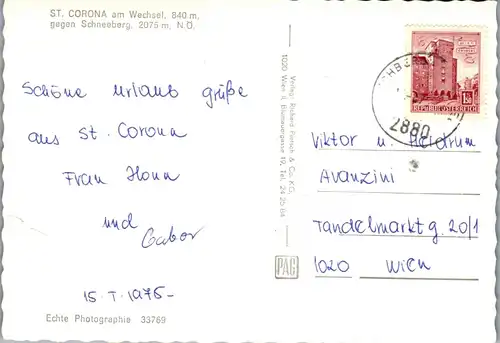 ST. CORONA am Wechsel, 840 m,
gegen Schneeberg, 2075 m, N.Ö.
Schöne Urlaubsgrüße
aus St. Corona
Frau Hona
und
Gabor
15. 7. 1975-
Echte Photographie 33769
Verlag: Richard Pietsch & Co. KG,
1020 Wien II, Blumauergasse 19, Tel. 24 25 84
PAG
REPUBLIK ÖSTERREICH
2880
Viktor u. Heidrun
Avanzini
Tandelmarktg. 20/1
1020 Wien